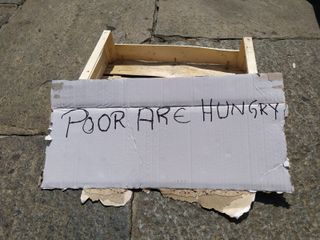 POOR ARE HUNGRY